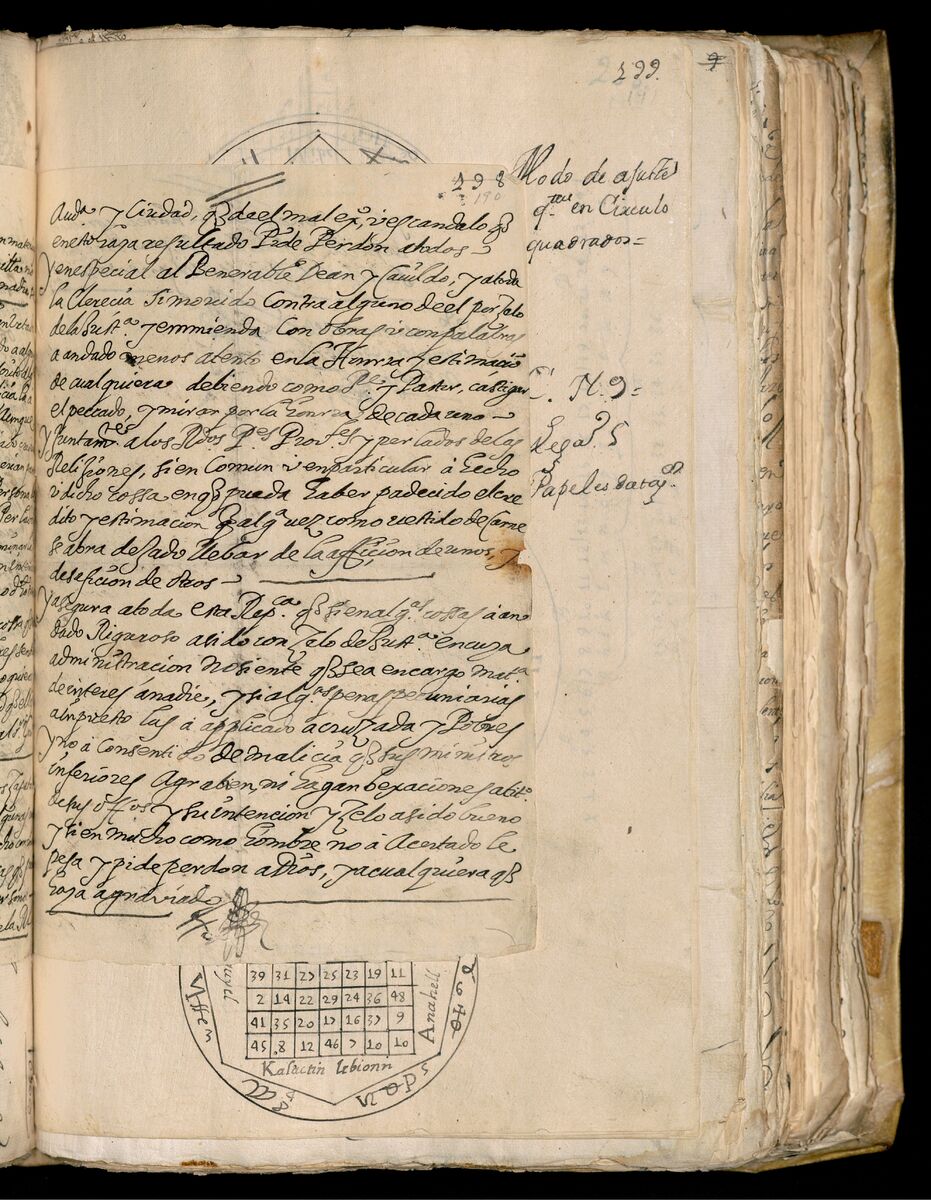 199.
198
190
Modo de ajuste
en Circulo
quadrados=
C. N. 9=
Lega. 5
Papeles
Auda y Ciudad, q̃ de el mal exo, i escandalo q̃
en esto raja resultado Pide Perdon a todos
y en especial al Benerable Dean y Cauildo, y a toda
la Clerecia si movido contra alguno de el por zelo
de la Justa. y enmienda con obras i con palabras
a andado menos atento en la Honrra y estimacion
de cualquiera debiendo como Pe. y Pastor, castigar
el peccado, y mirar por la honrra de cada uno
y juntamtes a los Rdos. Pes. y perlados de las
Religiones, si en comun i en particular à hecho
i dicho cossa en q̃ pueda haber padecido el cre
dito y estimacion q̃ alga. vez como vestido de Carne
se abra dejado llebar de la afficion de unos, y
desaficion de otros
y asegura a toda esta Repca. q̃ si en algas. cossas à an
dado Riguroso a sido con Zelo de Justa. en cuya
administracion no siente q̃ sea encargo mata.
de interes à nadie, y si algas. penas pecuniarias
a inpuesto las à applicado a cruzada y Pobres
y no à Consentido de malicia q̃ sus ministros
inferiores Agraben, ni hagan bexaciones abito.
de sus offos y su intencion y Zelo a sido bueno
y si en mucho como hombre no à Acertado le
pesa y pide perdon a Dios, y a cualquiera q̃
haya agraviado
39 31 27 25 23 19 11
2 14 22 29 24 36 48
41 35 20 17 16 37 9
45 8 12 46 7 10 10
Anahell
Kalactin Lebionn